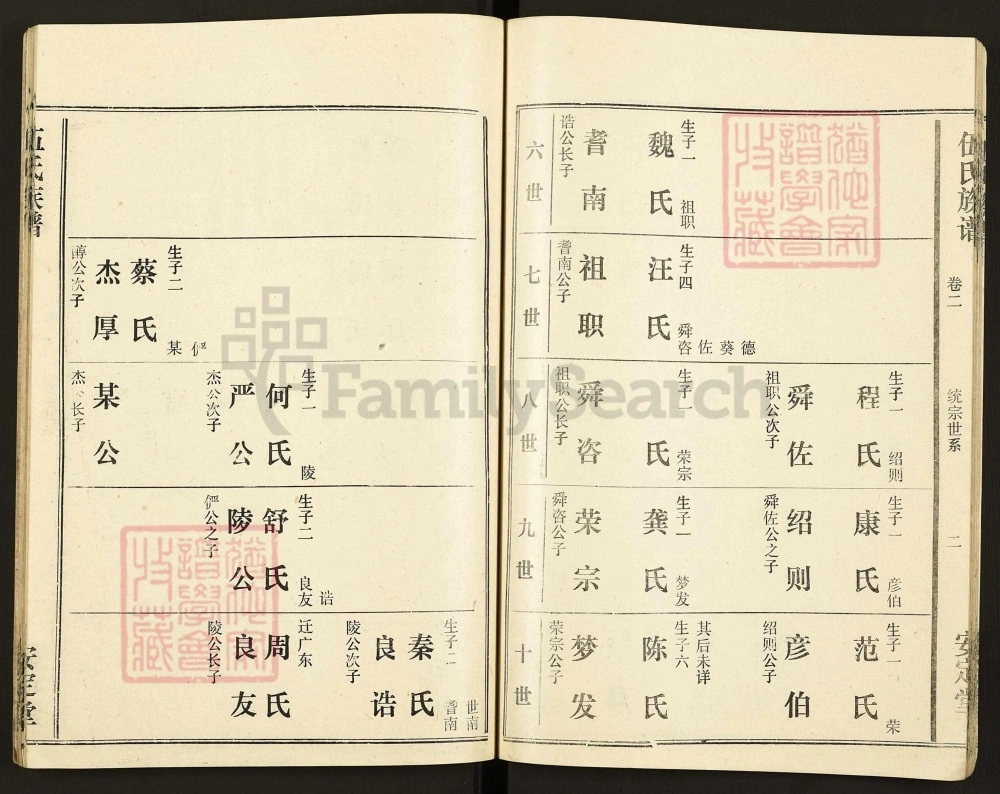 伍氏族谱
卷二
统宗世系
二
安定堂
六世
诰公长子
耆南
魏氏
生子一
祖职
七世
耆南公子
祖职
汪氏
生子四
舜咨
佐
葵
德
八世
祖职公长子
舜咨
氏
生子一
荣宗
祖职公次子
舜佐
程氏
生子一
绍则
九世
舜咨公子
荣宗
龚氏
生子一
梦发
舜佐公之子
绍则
康氏
生子一
彦伯
十世
荣宗公子
梦发
陈氏
生子六
其后未详
绍则公子
彦伯
范氏
生子一
荣
杰厚
公次子
蔡氏
生子二
某
俨
某公
杰公长子
杰公次子
严公
何氏
生子一
陵
俨公之子
陵公
舒氏
生子二
良友
诰
陵公长子
良友
周氏
迁广东
陵公次子
良诰
秦氏
生子二
耆南
世南
伍氏族谱
安定堂
FamilySearch